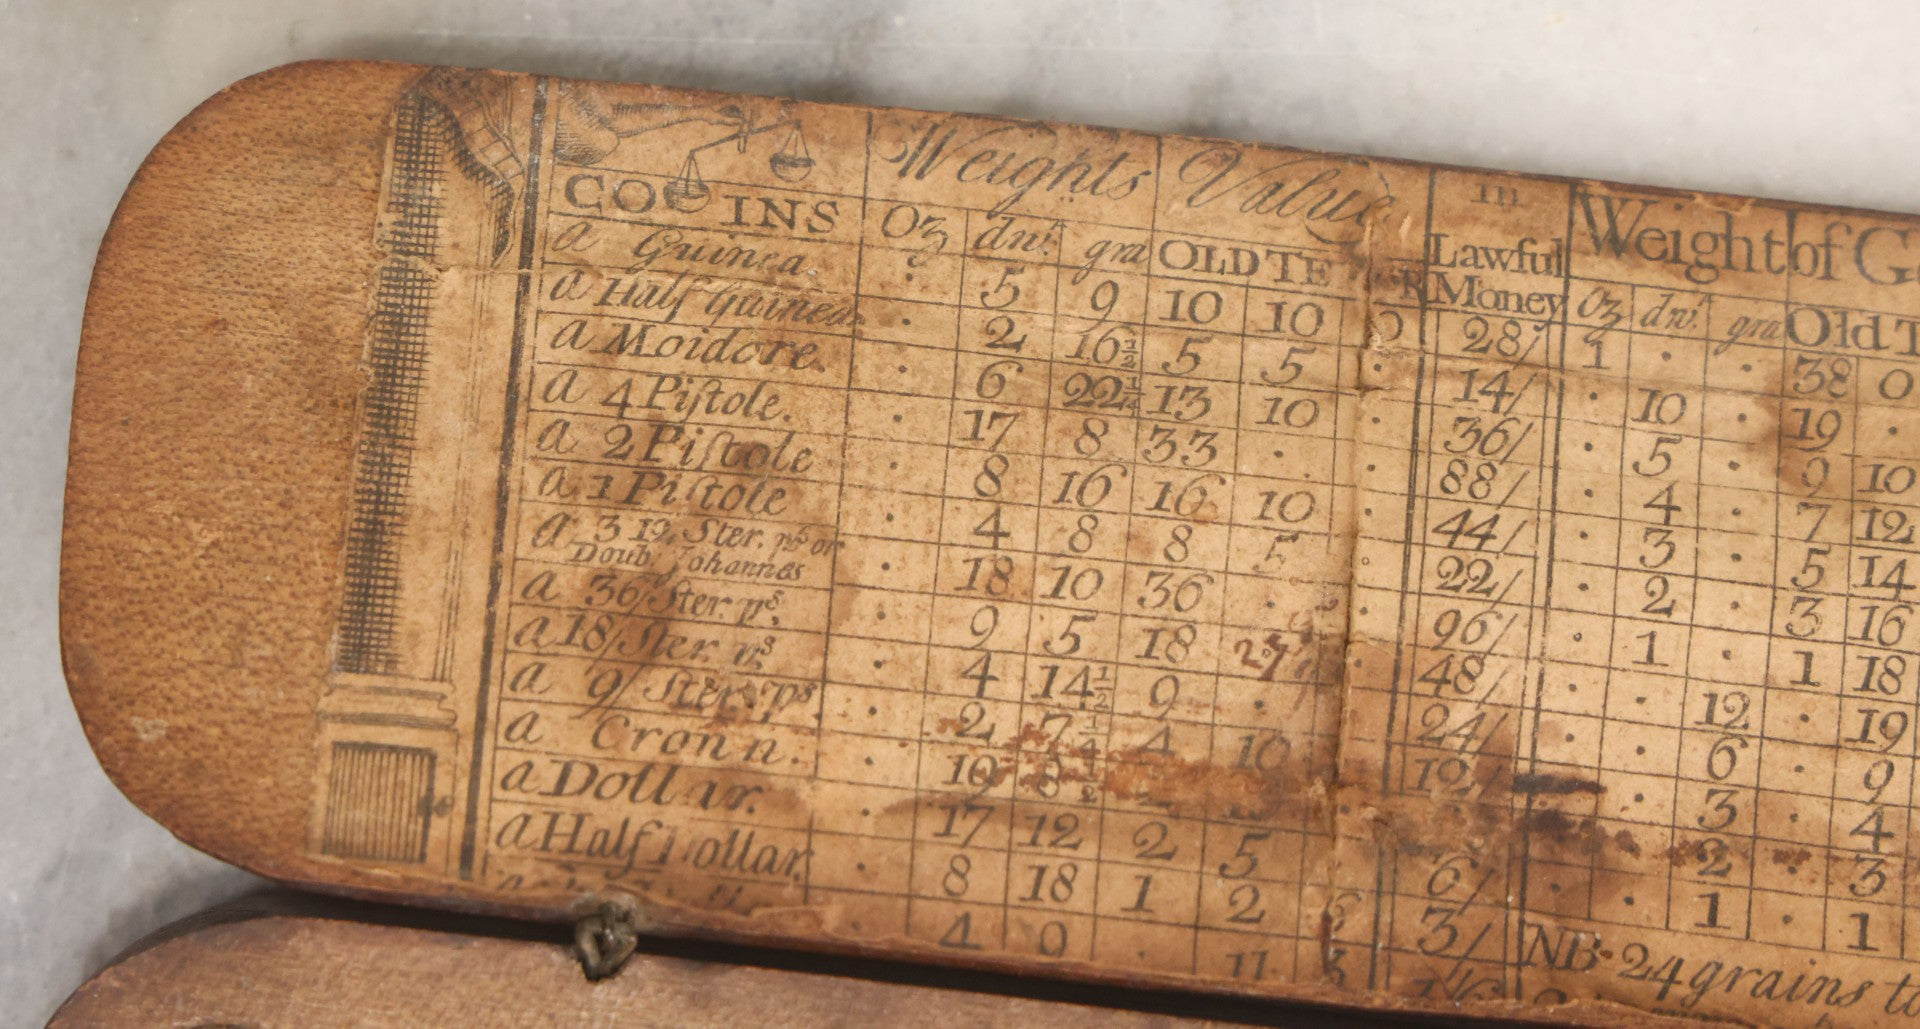 COINS Weights Value in Weight of G
Oz dwt. gra OLD TE R Lawful Money Oz dwt. gra Old T
a Guinea . 5 9 10 10 0 28/ 1 . . 38 0
a Half Guinea . 2 16½ 5 5 . 14/ . 10 . 19 .
a Moidore. . 6 22¼ 13 10 . 36/ . 5 . 9 10
a 4 Piſtole. . 17 8 33 . . 88/ . 4 . 7 12
a 2 Piſtole . 8 16 16 10 . 44/ . 3 . 5 14
a 1 Piſtole . 4 8 8 5 . 22/ . 2 . 3 16
a 3 12 Ster. ps or Doub Johannes . 18 10 36 . . 96/ . 1 . 1 18
a 36/Ster. ps. . 9 5 18 . 48/ . . 12 . 19
a 18/Ster. ps . 4 14½ 9 . 24/ . . 6 . 9
a 9/Ster. ps . 2 7¼ 4 10 12/ . . 3 . 4
a Crown. . 2 . 3
a Dollar. . 17 12 2 5 6/ . . 1 . 1
a Half Dollar. 8 18 1 2 6 3/
4 0 . 11 3 1/6
NB. 24 grains to